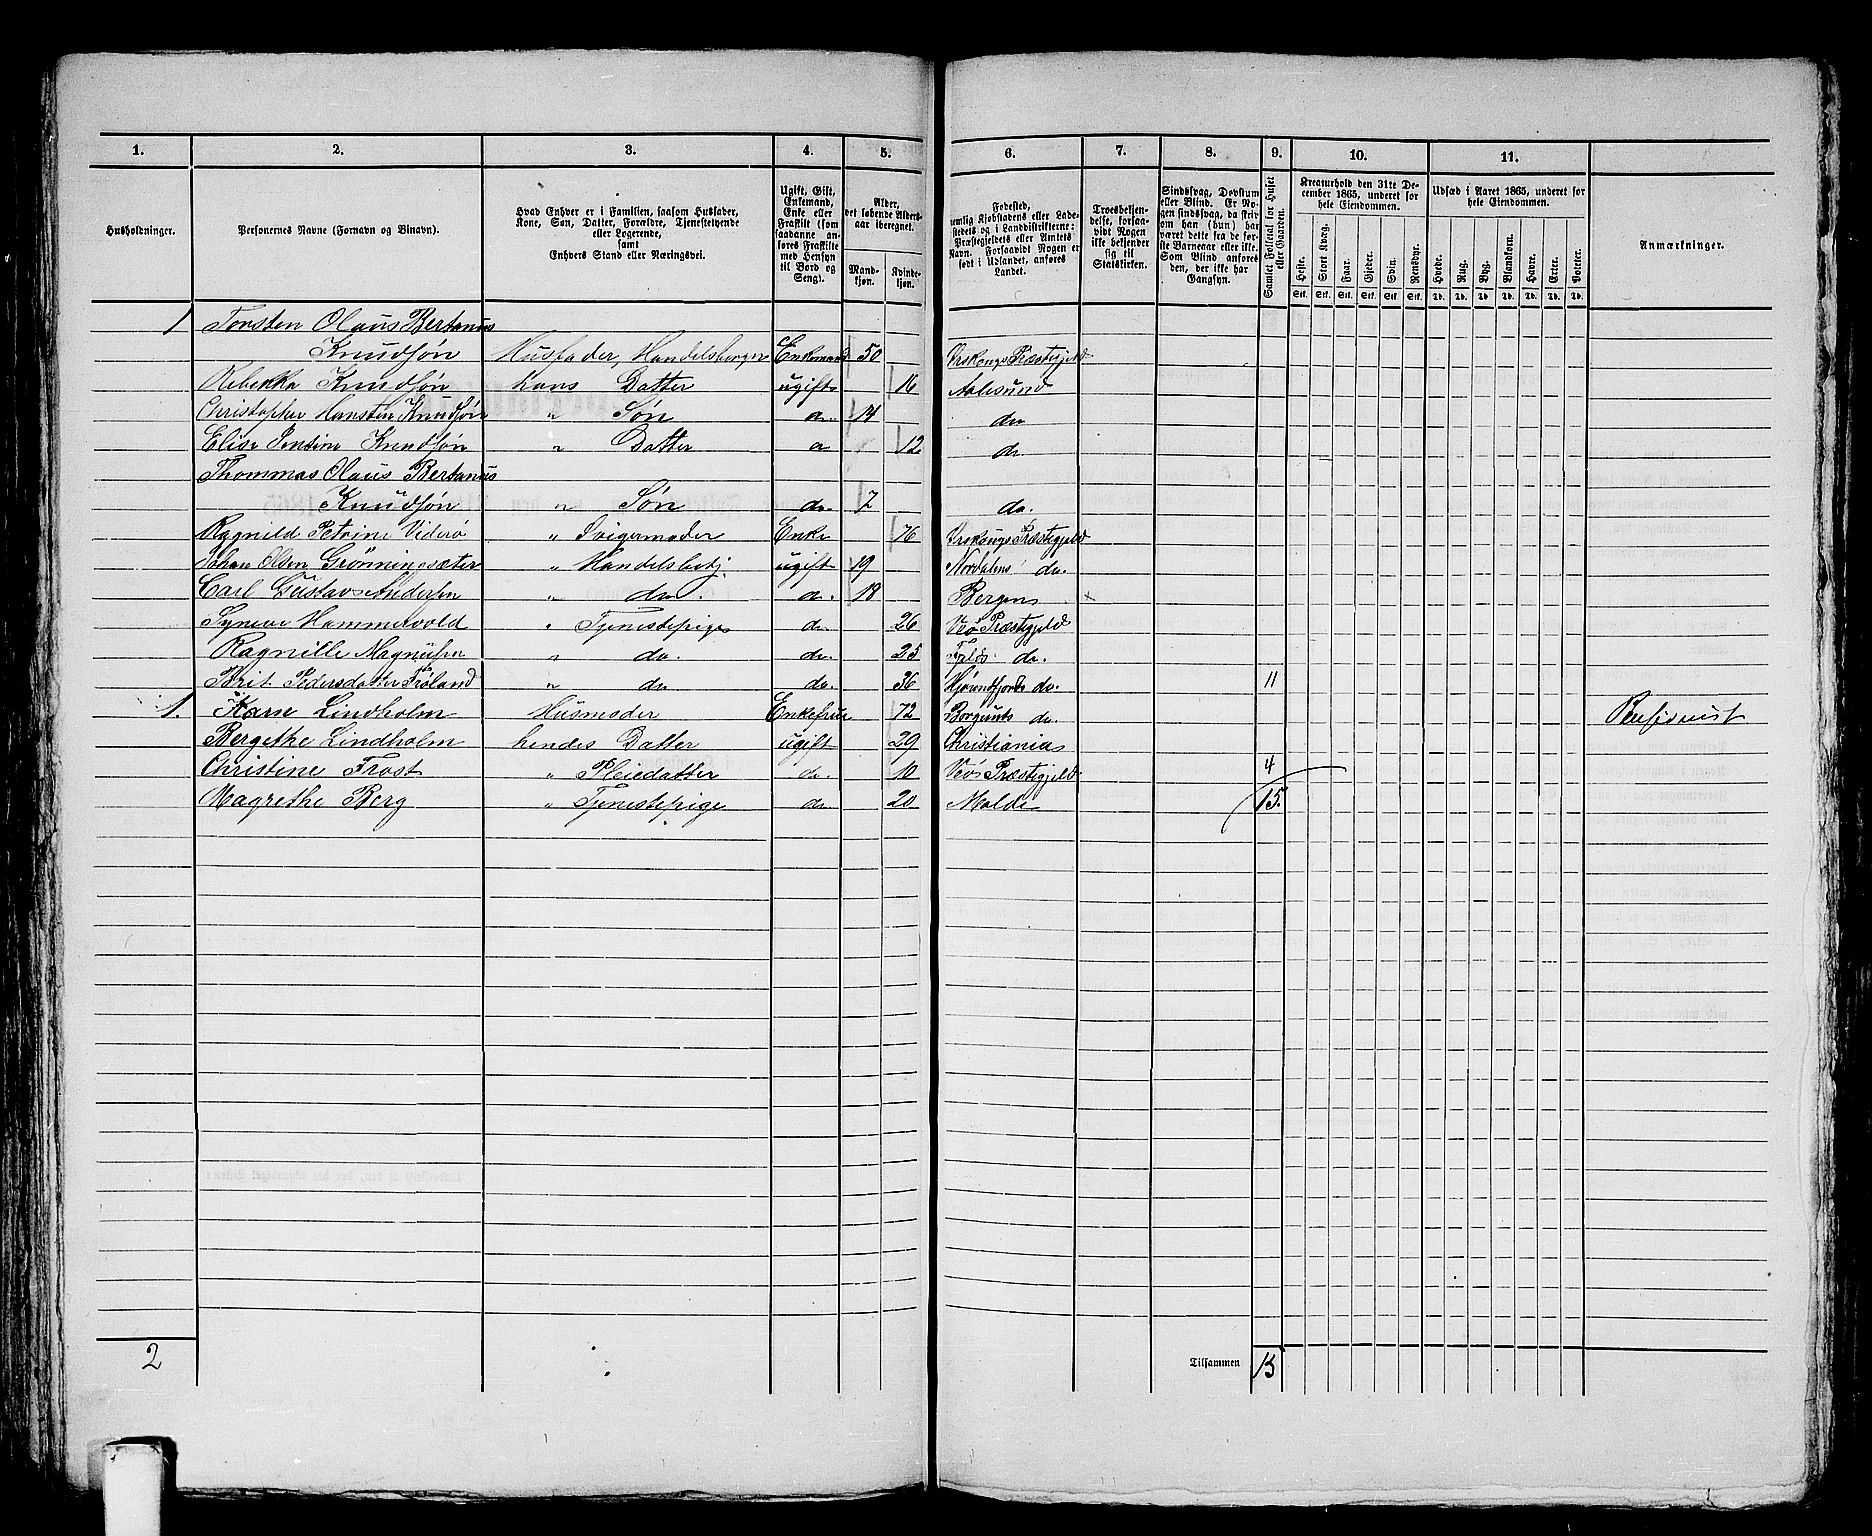 1. 2. 3. 4. 5. 6. 7. 8. 9. 10. 11.
Husholdninger.
Personernes Navne (Fornavn og Binavn).
Hvad Enhver er i Familien, saasom Husfader, Kone, Søn, Datter, Forældre, Tjenestetyende eller Logerende, samt Enhvers Stand eller Næringsvei.
Ugift, Gift, Enkemand, Enke eller Fraskilt (som saadanne anføres Fraskilte med Hensyn til Bord og Seng).
Alder, det løbende Alders-aar iberegnet.
Mand-kjøn. Kvinde-kjøn.
Fødested, nemlig Kjøbstadens eller Ladestedets og i Landdistrikterne: Præstegjeldets eller Amtets Navn. Forsaavidt Nogen er født i Udlandet, anføres Landet.
Troesbekjendelse, forsaavidt Nogen ikke bekjender sig til Statskirken.
Sindssvag, Døvstum eller Blind. Er Nogen sindssvag, da skriv om han (hun) har været dette fra de første Barneaar eller ikke. Som Blind anføres den, der ikke har Gangsyn.
Samlet Folketal for Huset eller Gaarden.
Kreaturhold den 31te December 1865, underet for hele Eiendommen.
Heste. Stort Kvæg. Faar. Gjeder. Svin. Rensdyr.
Stk. Stk. Stk. Stk. Stk. Stk.
Udsæd i Aaret 1865, underet for hele Eiendommen.
Hvede. Rug. Byg. Blandkorn. Havre. Erter. Poteter.
Td. Td. Td. Td. Td. Td. Td.
Anmærkninger.
1 Torsten Olaus Bertanus
Knudssøn Husfader, Handelsborger Enkemand 50 Ørskougs Præstegjeld
Rebekka Knudssøn hans Datter ugift 16 Aalesund
Christopher Hansten Knudssøn " Søn do. 14 do
Elise Jensine Knudssøn " Datter do 12 do
Thommas Olaus Bertanus
Knudssøn " Søn do. 7 do.
Ragnild Petrine Viderø " Svigermoder Enke 76 Ørskougs Præstegjeld
Johan Olsen Grønningsæter " Handelsbetj. ugift 19 Nordalens do.
Carl Gustav Andersen " do. do. 18 Bergen ×
Synneve Hammervold " Tjenestepige do 26 Veø Præstegjeld
Ragnille Magnusen " do. do. 25 do.
Brit Pedersdatter " do do. 36 Hjørendfjords do. 11
1. Karn Lindholm Husmoder Enkefrue 72 Borgunds do. Pensionist
Bergethe Lindholm hendes Datter ugift 29 Christiania
Christine Frost " Pleiedatter do. 10 Veø Præstegjeld 4
Magrethe Berg " Tjenestepige do 20 Molde 15.
2 Tilsammen 15